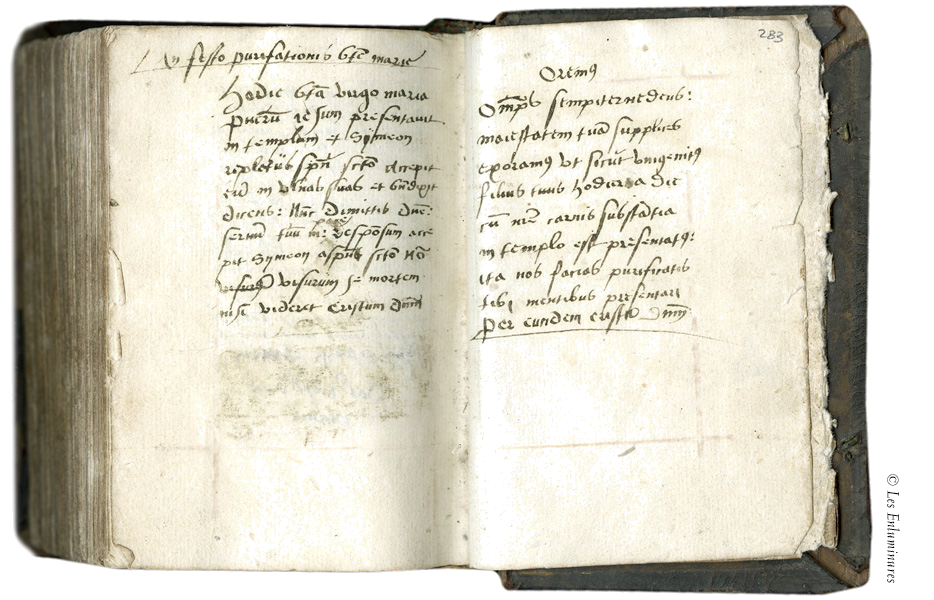 In festo purifationis bte marie
Hodie bta virgo maria
puerū iesum presentavit
in templum et Symeon
repletus spū scto accepit
eū in ulnas suas et bndixit
dicens: Nūc Dimittis dne:
servū tuū in: Resposum acce
pit Symeon a spū scto nō
visurū visurum se mortem
nisi videret Cristum Dnm
283
Oremus
Omps sempiterne deus:
maiestatem tuā supplices
exoramus ut sicut unigenitus
filius tuus hodierna die
cū nre carnis substātia
in templo est presentatus:
ita nos facias purificatis
tibi mentibus presentari
Per eundem cristū dnm
© Les Enluminures